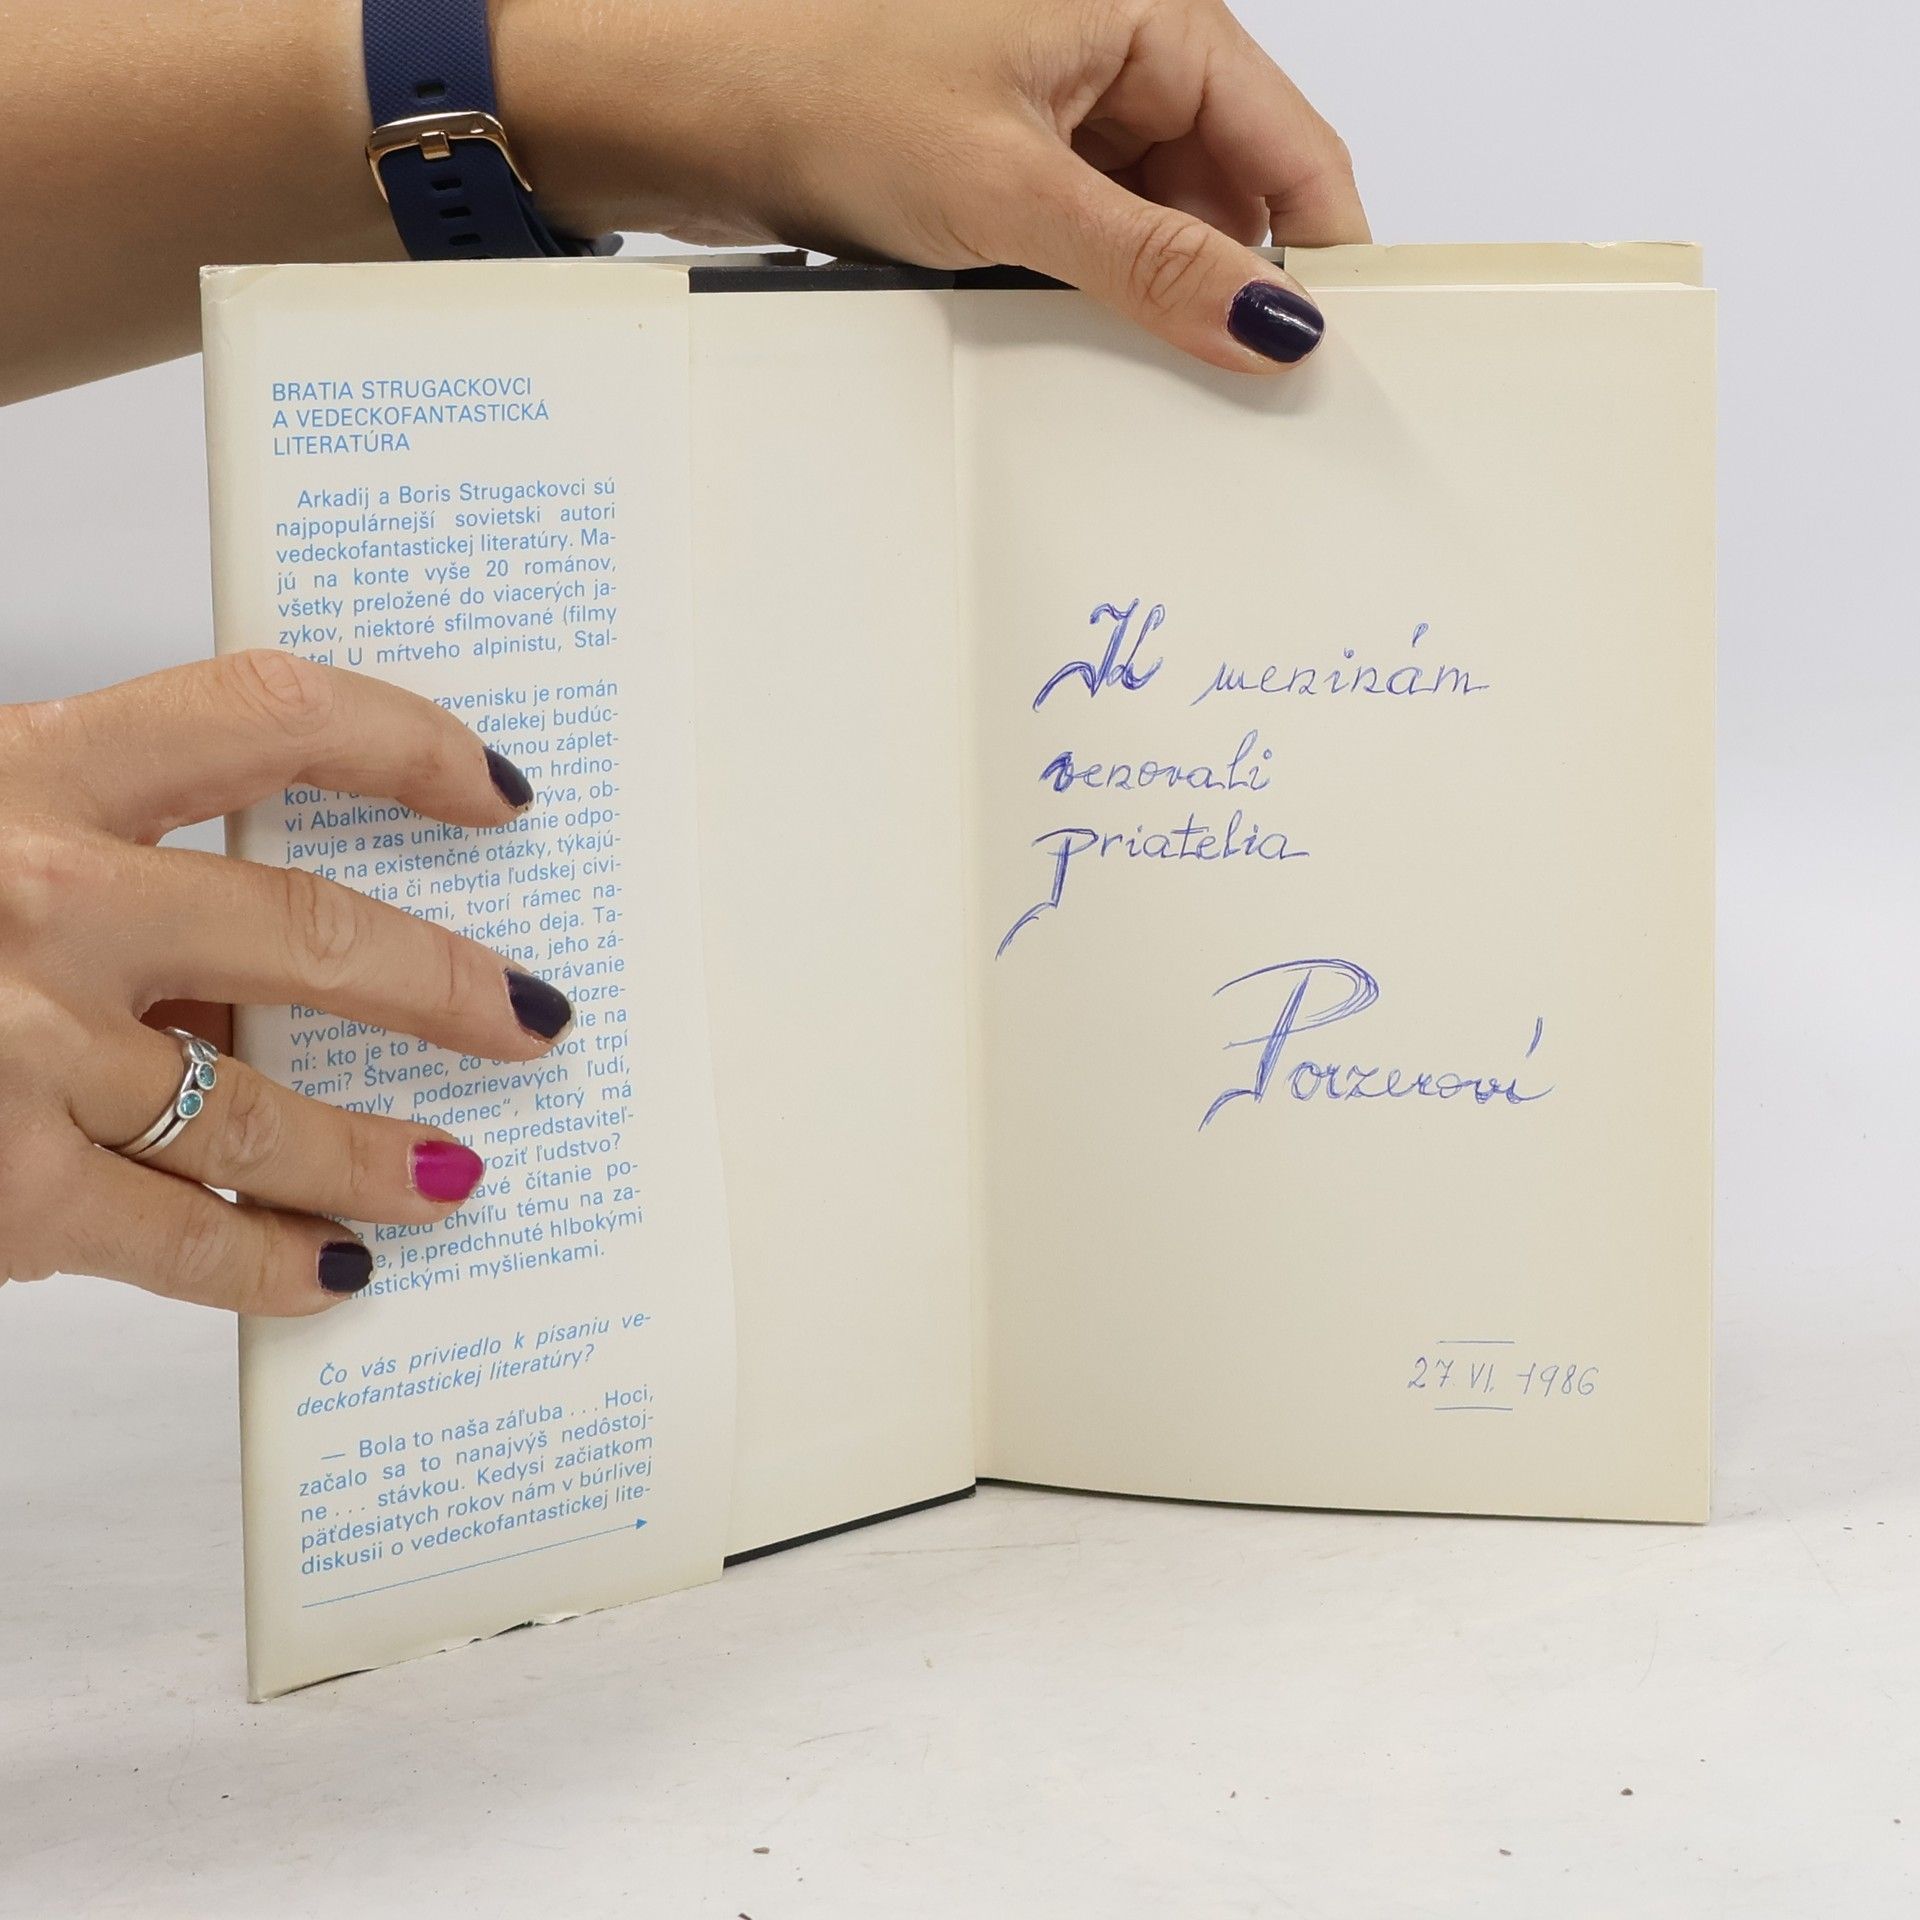 BRATIA STRUGACKOVCI
A VEDECKOFANTASTICKÁ
LITERATÚRA
Arkadij a Boris Strugackovci sú
najpopulárnejší sovietski autori
vedeckofantastickej literatúry. Ma-
jú na konte vyše 20 románov,
všetky preložené do viacerých ja-
zykov, niektoré sfilmované (filmy
U mŕtveho alpinistu, Stal-
ravenisku je román
ďalekej budúc-
tívnou záplet-
hrdino-
kou.
rýva, ob-
vi Abalkinovi
javuje a zas uniká, hľadanie odpo-
de na existenčné otázky, týkajú-
či nebytia ľudskej civi-
Zemi, tvorí rámec na-
tického deja. Ta-
kina, jeho zá-
správanie
dozre-
vyvoláva
nie na
ní: kto je to a
život trpí
Zemi? Štvanec, čo
myly podozrievavých ľudí,
dhodenec“, ktorý má
nepredstaviteľ-
roziť ľudstvo?
avé čítanie po-
každú chvíľu tému na za-
je predchnuté hlbokými
nistickými myšlienkami.
Čo vás priviedlo k písaniu ve-
deckofantastickej literatúry?
— Bola to naša záľuba . . . Hoci,
začalo sa to nanajvýš nedôstoj-
ne . . . stávkou. Kedysi začiatkom
päťdesiatych rokov nám v búrlivej
diskusii o vedeckofantastickej lite-
K meninám
venovali
priatelia
Porzeroví
27. VI. 1986